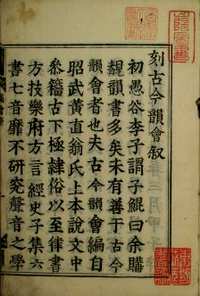 刻古今韻會叙
初愚谷李子謂子鯤曰余購
韻書多矣未有善于古今
韻會者也夫古今韻會編自
昭武黃直翁氏上本說文中
參籀古下極隸俗以至律書
方技樂府方言經史子集六
書七音靡不研究聲音之學